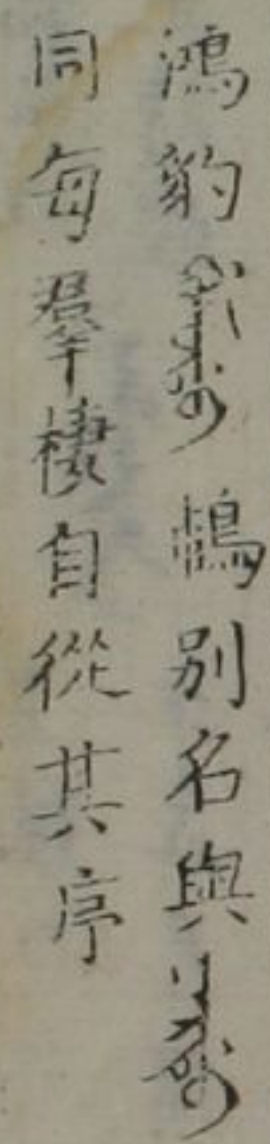 鴻豹 鴇別名與
同每羣棲自從其序